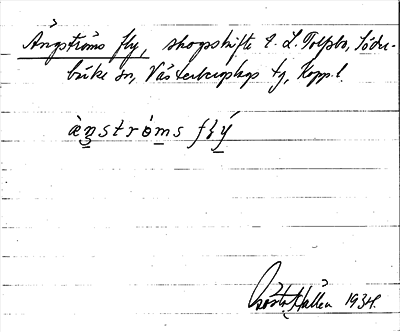 Ångströms fly, skogsskifte t. L. Tolsbo, Söder-
bärke sn, Västerbergslags tg, Kopp. l.
àŋströ̀ms flý
Gösta Hallén 1934.